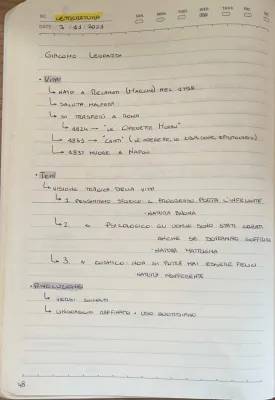 NO. LETTERATURA
DATE 3/11/2021
GIACOMO LEOPARDI
• VITA
↳ NATO A RECANATI (MARCHE) NEL 1798
↳ SALUTE MALFERMA
↳ SI TRASFERÌ A ROMA
↳ 1824 → "LE OPERETTE MORALI"
↳ "CANTI"
↳ 1837 MUORE A NAPOLI
• TEMI
↳ VISIONE TRAGICA DELLA VITA
↳ 1. PESSIMISMO STORICO: IL PROGRESSO PORTA L'INFELICITÀ
NATURA BUONA
↳ 2. PSICOLOGICO: GLI UOMINI SONO STATI CREATI
ANCHE SE DOVRANNO SOFFRIRE
NATURA MATRIGNA
↳ 3. COSMICO: NON SI POTRÀ MAI ESSERE FELICI
NATURA INDIFFERENTE
↳ VERSI SCIOLTI
↳ LINGUAGGIO RAFFINATO + USO QUOTIDIANO
48